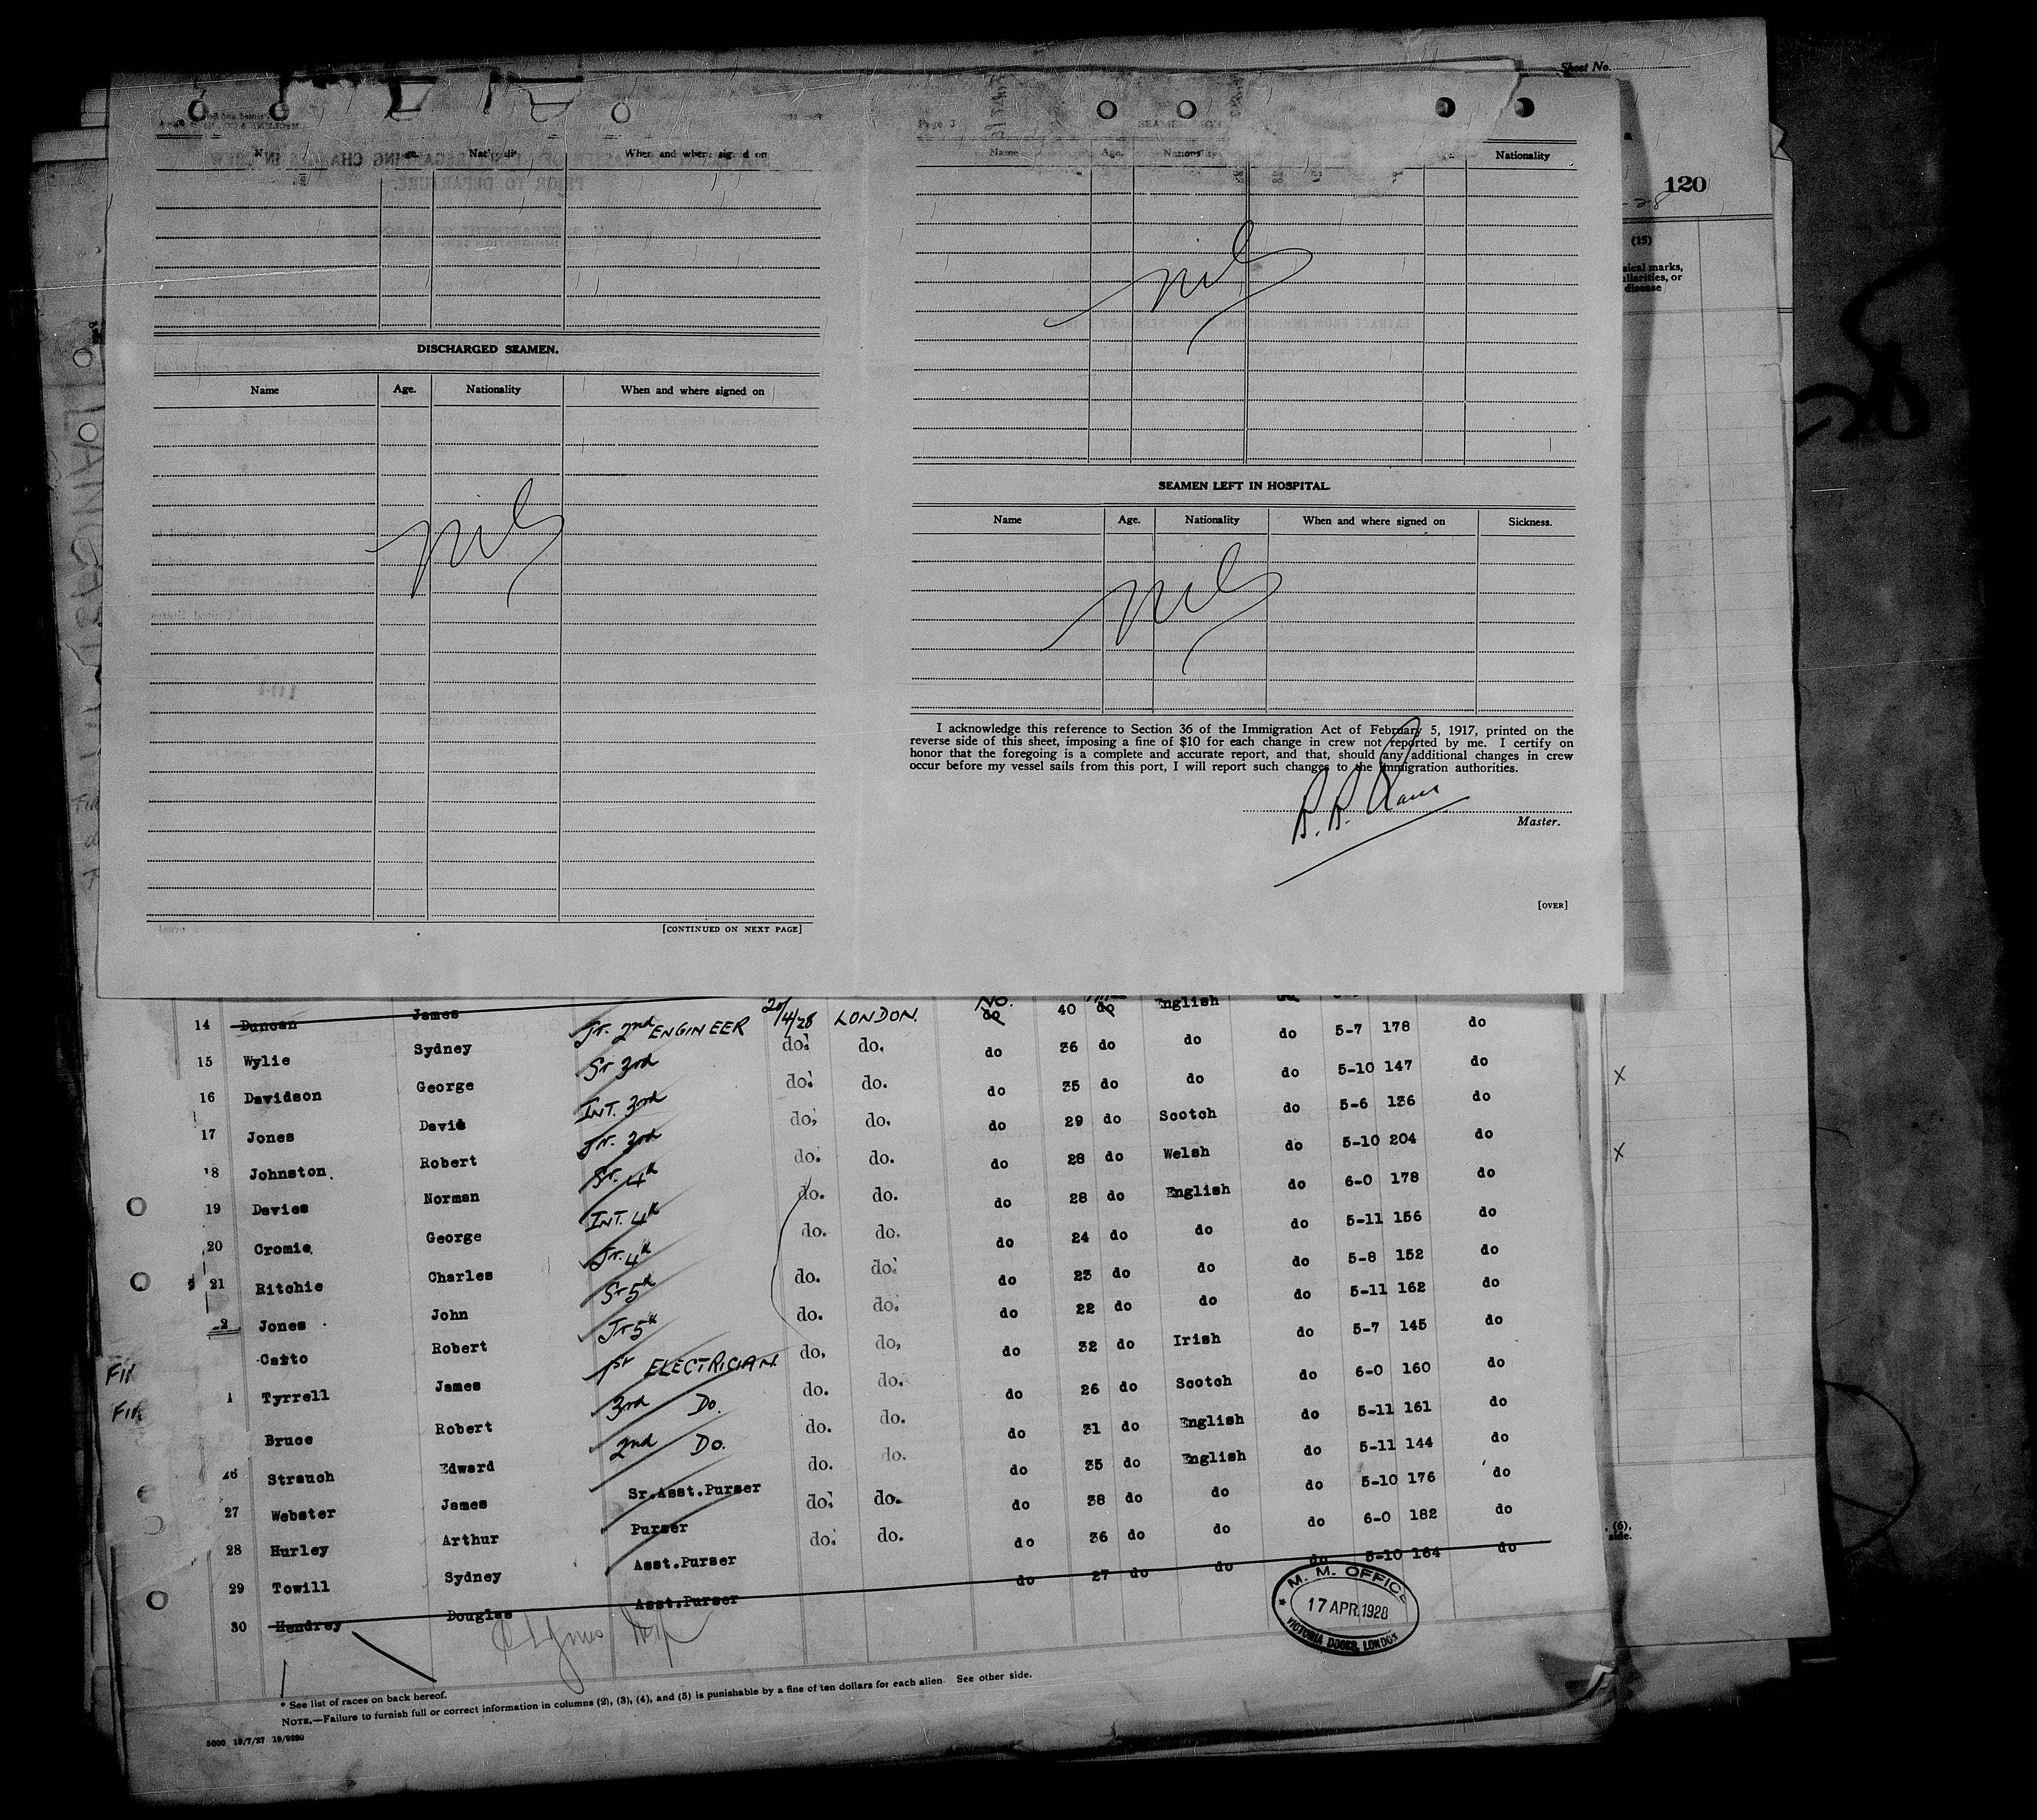 Sheet No.
Page 3
When and where signed on
Name Age. Nationality
Nationality
120
(15)
DISCHARGED SEAMEN.
Name Age. Nationality When and where signed on
nil
nil
[CONTINUED ON NEXT PAGE]
SEAMEN LEFT IN HOSPITAL.
Name Age. Nationality When and where signed on Sickness.
nil
I acknowledge this reference to Section 36 of the Immigration Act of February 5, 1917, printed on the
reverse side of this sheet, imposing a fine of $10 for each change in crew not reported by me. I certify on
honor that the foregoing is a complete and accurate report, and that, should any additional changes in crew
occur before my vessel sails from this port, I will report such changes to the immigration authorities.
Master.
[OVER]
14 Duncan James
15 Wylie Sydney Jr. 2nd ENGINEER 20/4/28 LONDON. NO. do 40 do English
16 Davidson George Sr 3rd do. do. do 36 do do do 5-7 178 do
17 Jones David INT. 3rd do. do. do 35 do do do 5-10 147 do
18 Johnston. Robert Jr. 3rd do. do. do 29 do Scotch do 5-6 136 do
19 Davies Norman Sr. 4th do. do. do 28 do Welsh do 5-10 204 do
20 Cromie. George INT. 4th do. do. do 28 do English do 6-0 178 do
21 Ritchie Charles Jr. 4th do. do. do 24 do do do 5-11 156 do
2 Jones John Sr 5th do. do. do 23 do do do 5-8 152 do
Caito Robert Jr 5th do. do. do 22 do do do 5-11 162 do
Tyrrell James 1st ELECTRICIAN do. do. do 32 do Irish do 5-7 145 do
Bruce Robert 3rd Do. do. do. do 26 do Scotch do 6-0 160 do
26 Strauch Edward 2nd Do. do. do. do 31 do English do 5-11 161 do
27 Webster James Sr.Asst.Purser do. do. do 35 do English do 5-11 144 do
28 Hurley Arthur Purser do. do. do 38 do do do 5-10 176 do
29 Towill Sydney Asst.Purser do. do. do 36 do do do 6-0 182 do
30 Hendrey Douglas Asst.Purser do 27 do do do 5-10 164 do
M. M. OFFICE
17 APR. 1928
VICTORIA DOCKS, LONDON
* See list of races on back hereof.
NOTE.—Failure to furnish full or correct information in columns (2), (3), (4), and (5) is punishable by a fine of ten dollars for each alien. See other side.
5000 18/7/27 19/9290